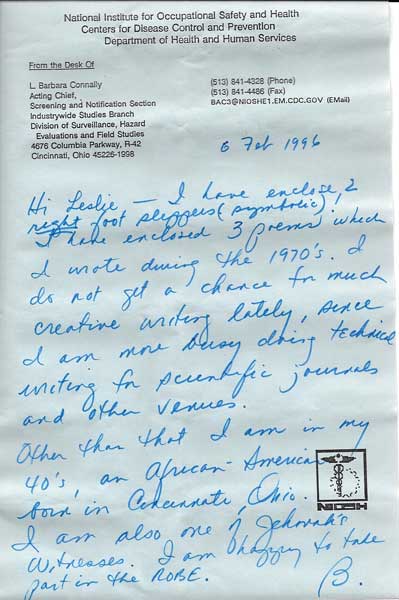 National Institute for Occupational Safety and Health
Centers for Disease Control and Prevention
Department of Health and Human Services
From the Desk Of
L. Barbara Connally
Acting Chief,
Screening and Notification Section
Industrywide Studies Branch
Division of Surveillance, Hazard
Evaluations and Field Studies
4676 Columbia Parkway, R-42
Cincinnati, Ohio 45226-1998
(513) 841-4328 (Phone)
(513) 841-4486 (Fax)
BAC3@NIOSHE1.EM.CDC.GOV (EMail)
6 Feb 1996
Hi Leslie — I have enclose, 2
right foot slippers (symbolic),
I have enclosed 3 poems which
I wrote during the 1970's. I
do not get a chance for much
creative writing lately, since
I am more busy doing technical
writing for scientific journals
and other venues.
Other than that I am in my
40's, an African-American
born in Cincinnati, Ohio.
I am also one of Jehovah's
Witnesses. I am happy to take
part in the ROBE.
B.
NIOSH